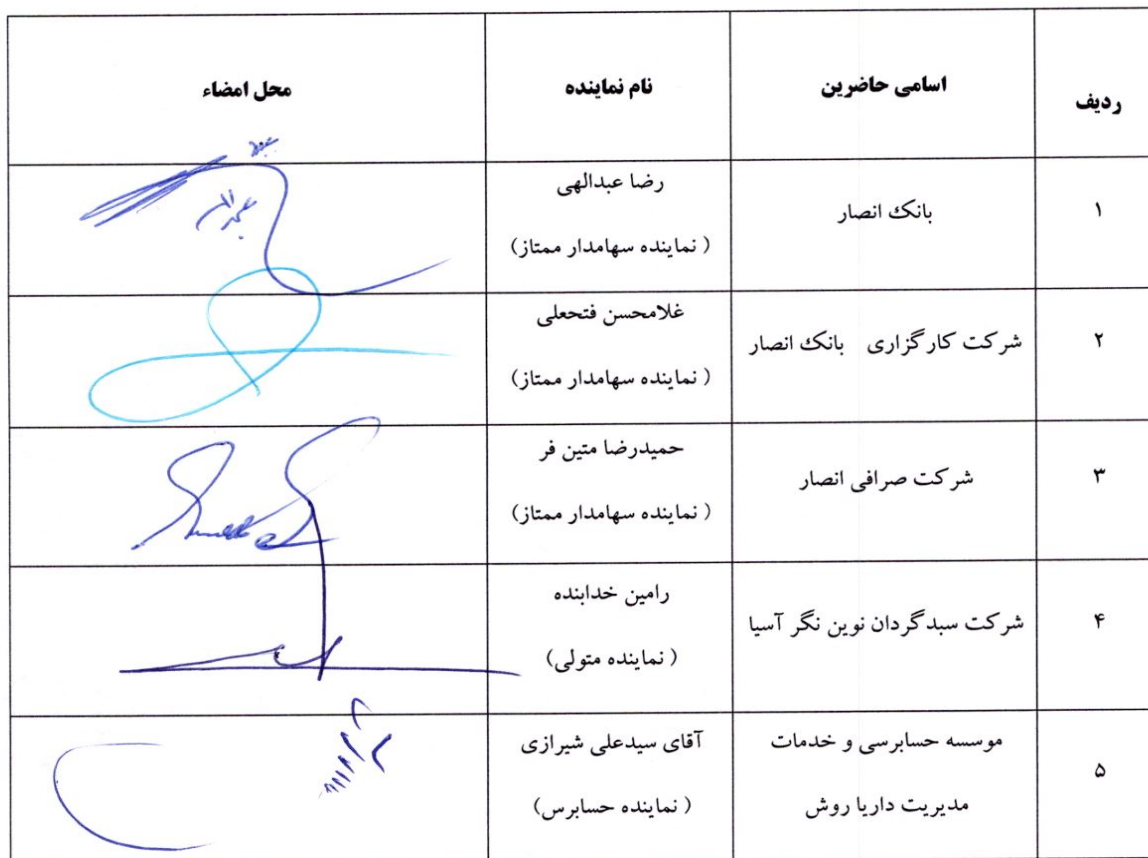 ردیف اسامی حاضرین نام نماینده محل امضاء
۱ بانک انصار رضا عبدالهی
( نماینده سهامدار ممتاز)
۲ شرکت کارگزاری بانک انصار غلامحسن فتحعلی
( نماینده سهامدار ممتاز)
۳ شرکت صرافی انصار حمیدرضا متین فر
( نماینده سهامدار ممتاز)
۴ شرکت سبدگردان نوین نگر آسیا رامین خدابنده
( نماینده متولی)
۵ موسسه حسابرسی و خدمات آقای سیدعلی شیرازی
مدیریت داریا روش ( نماینده حسابرس)